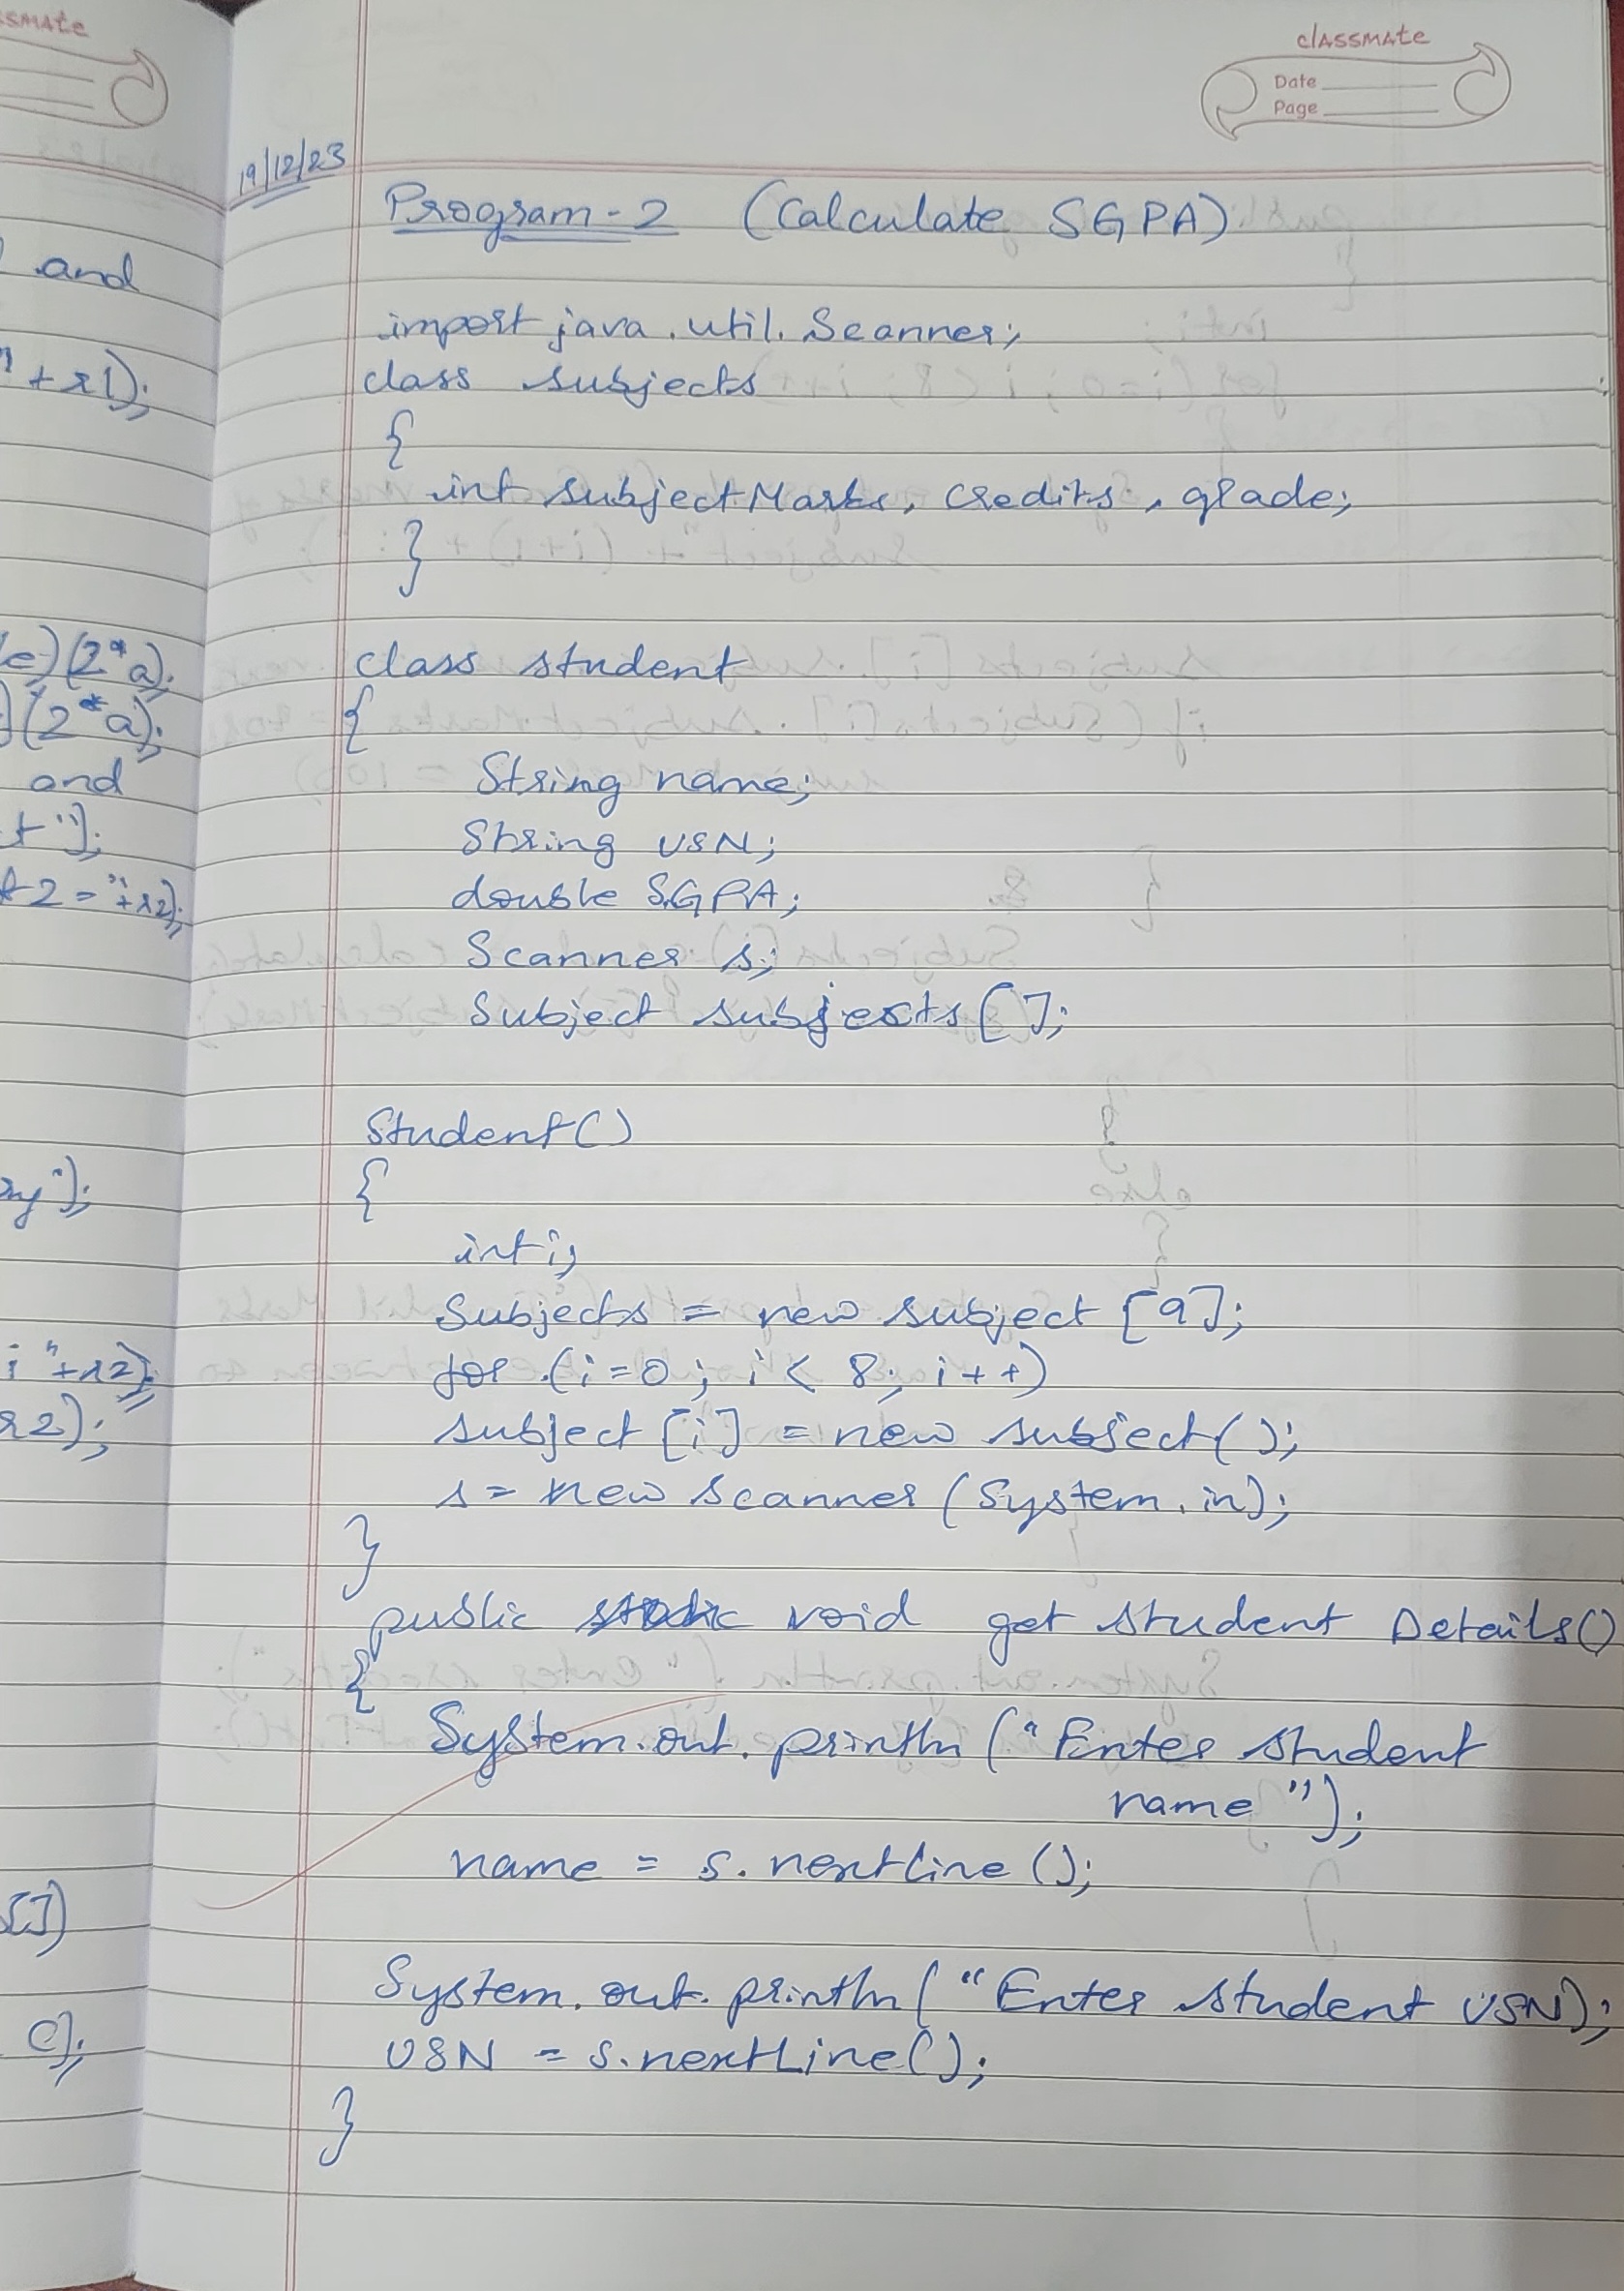 ssmate
and
" + r1);
(2*a);
(2*a);
and
t");
t 2 = "+r2);
ny");
i "+r2);
r2);
[])
c);
classmate
Date
Page
19/12/23
Program-2 (Calculate SGPA)
import java.util.Scanner;
class subjects
{
int subjectMarks, credits, grade;
}
class student
{
String name;
String USN;
double SGPA;
Scanner s;
Subject subjects[];
Student()
{
int i;
Subjects = new subject [9];
for (i=0; i< 8; i++)
subject [i] = new subject();
s = new Scanner (System.in);
}
public static void get student Details()
{
System.out.println ("Enter student
name");
name = s.nextline();
System.out.println("Enter student USN);
USN = s.nextLine();
}